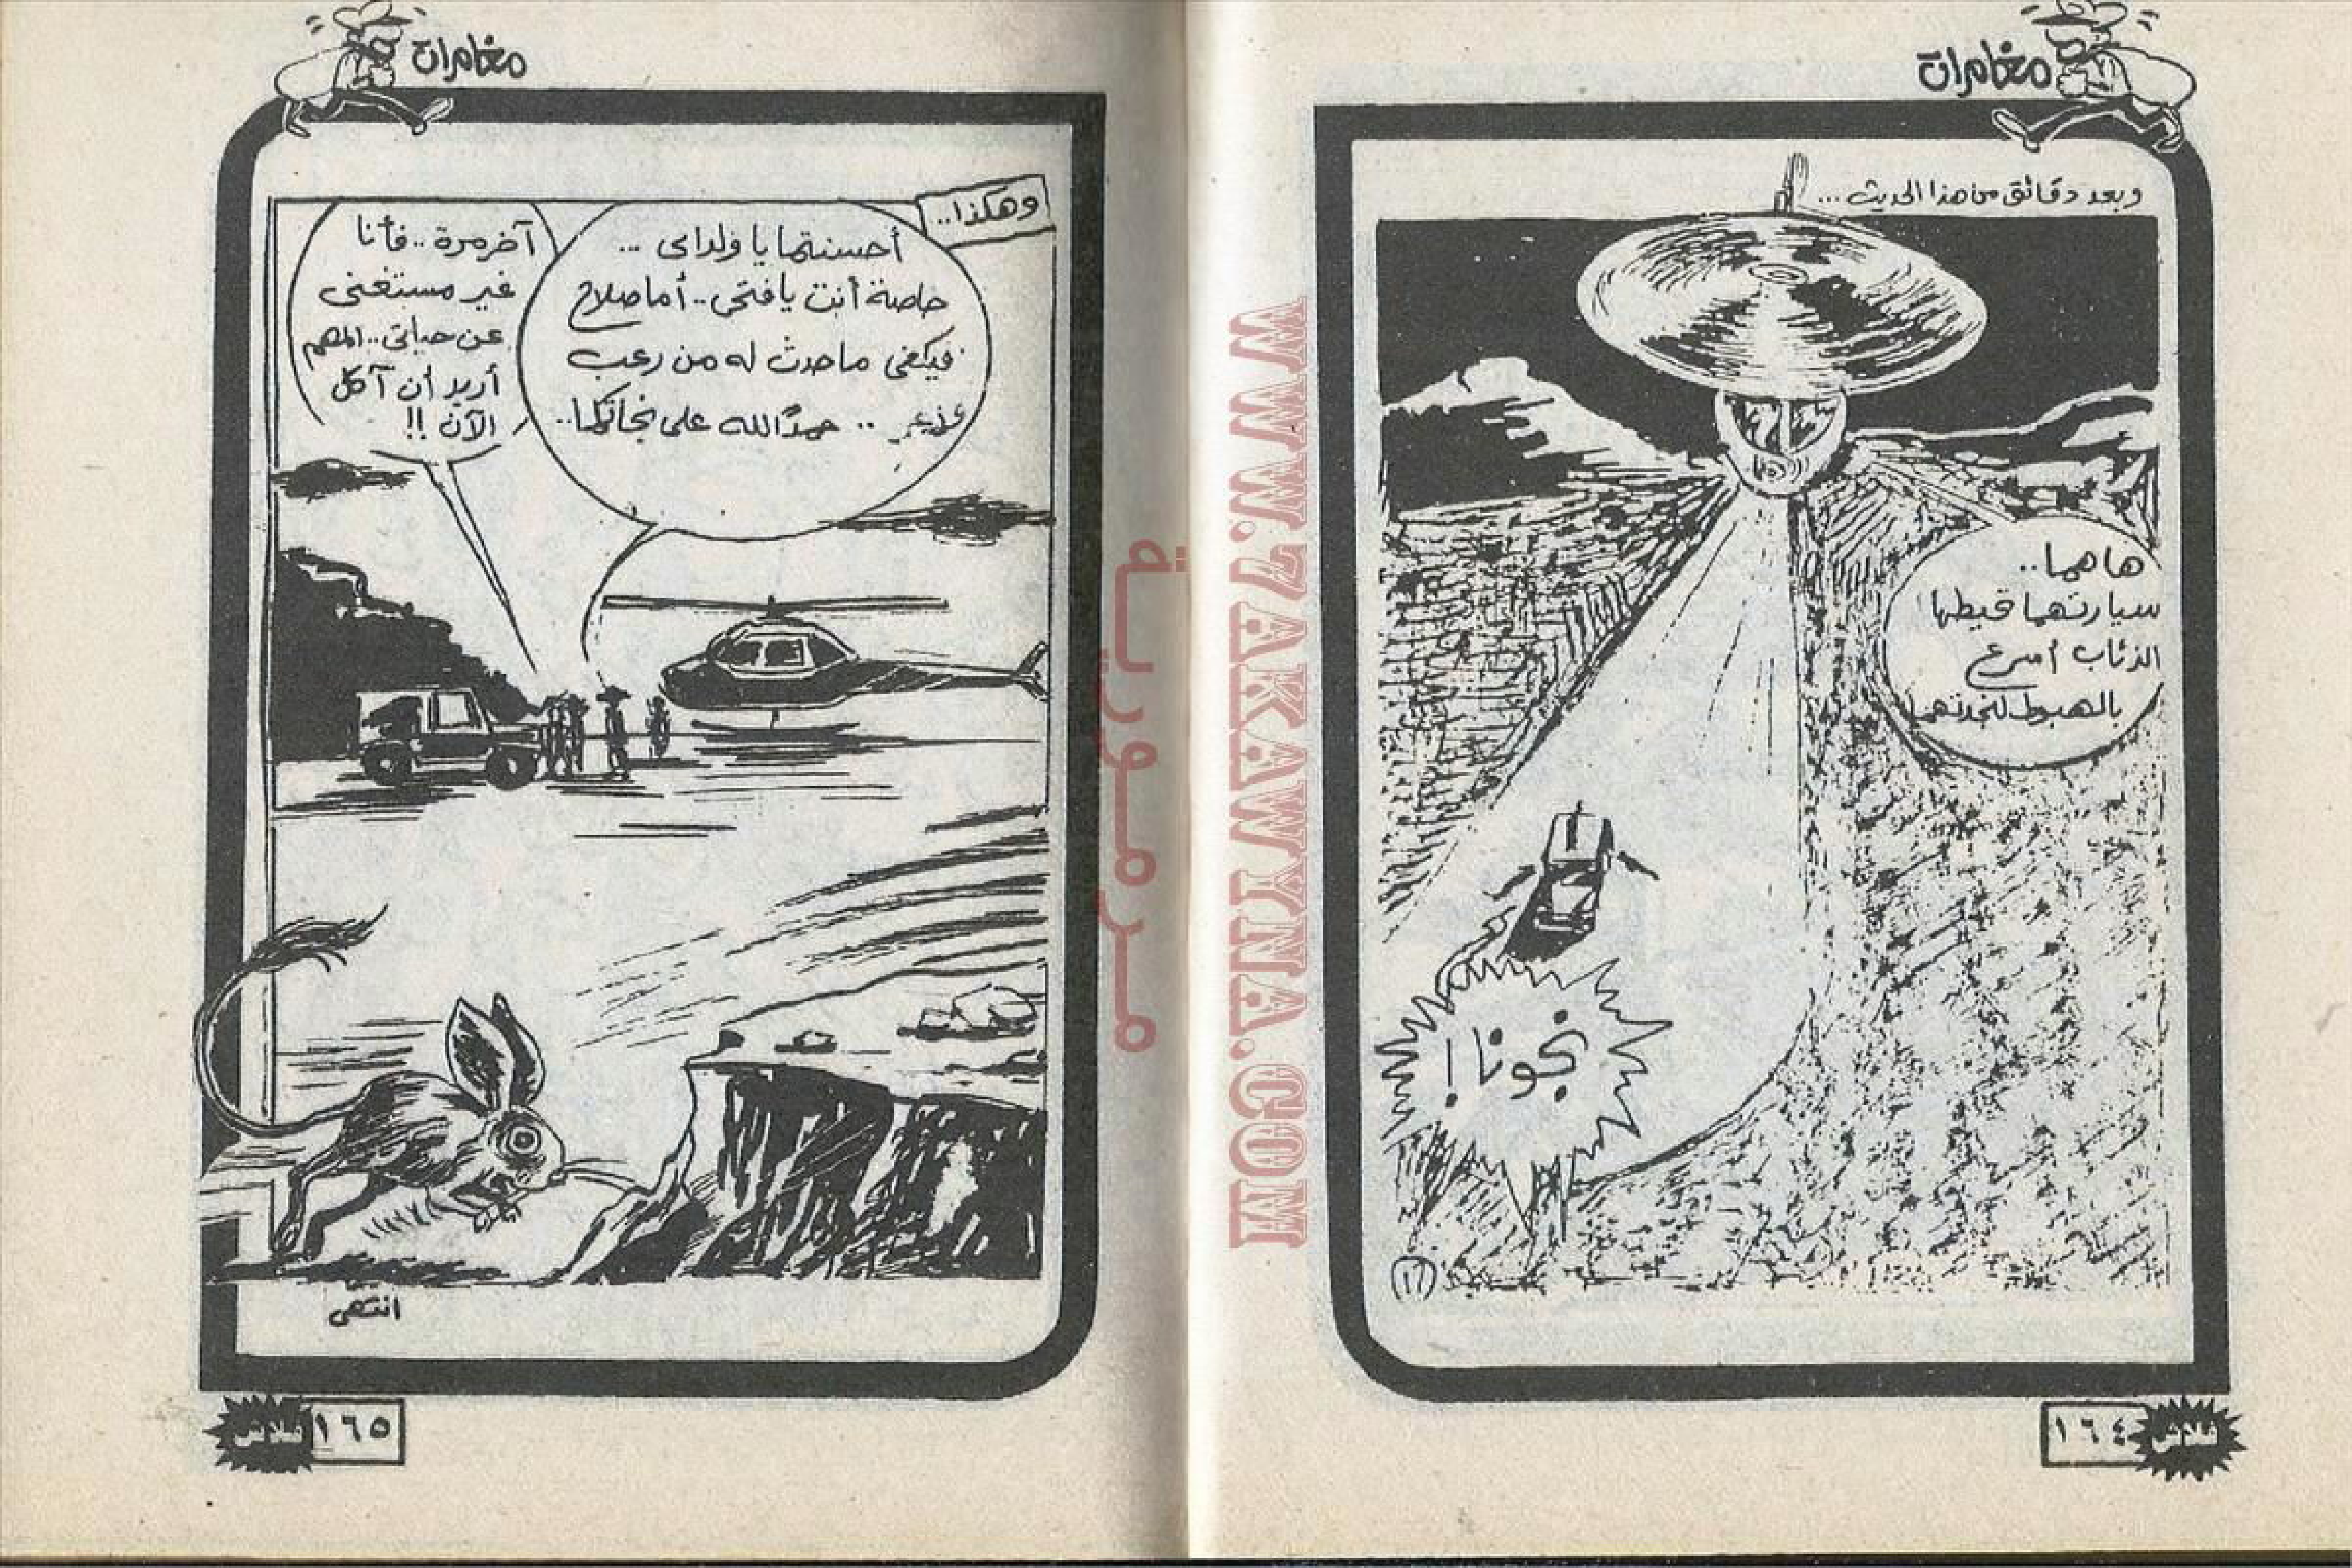 مغامرات
وبعد دقائق من هذا الحديث ...
هاهما ..
سيارتهما تحيطها
الذئاب أسرع
بالهبوط لنجدتهما
نجونا !
١٦٤
فلاش
مغامرات
وهكذا ..
أحسنتما يا ولداى ...
خاصة أنت يا فتحى .. أما صلاح
فيكفى ما حدث له من رعب
.. حمدًا لله على نجاتكما ..
آخر مرة .. فأنا
غير مستغنى
عن حياتى .. المهم
أريد أن آكل
الآن !!
انتهى
١٦٥
فلاش
مرمورية
WWW.7AKAWYNA.COM